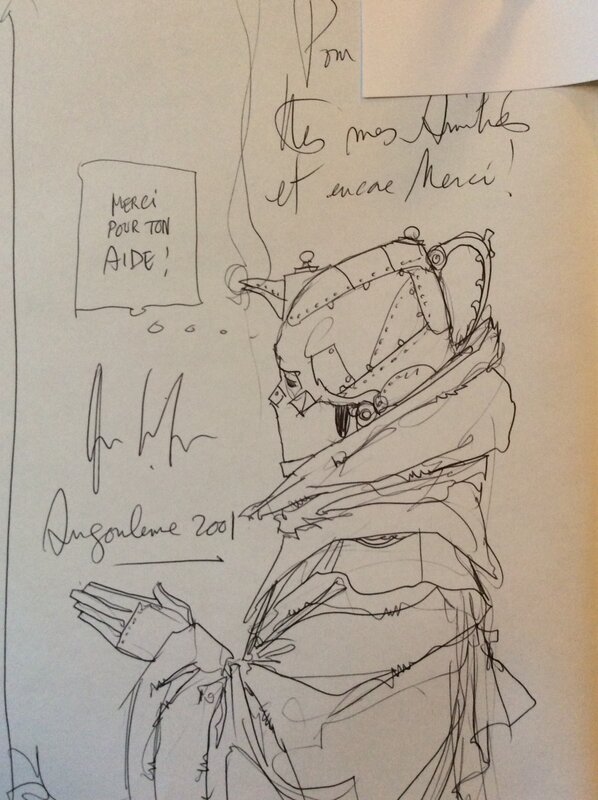 Pour
mes Amitiés
et encore Merci !
MERCI
POUR TON
AIDE !
Angoulême 2001